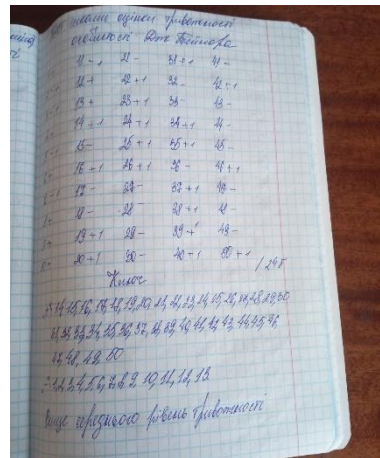 шкали оцінки тривожності
особистості Дж Тейлора
11 - 1 21 - 31 + 1 41 -
12 + 22 + 1 32 - 42 + 1
13 + 23 + 1 33 - 43 -
14 + 1 24 + 1 34 + 1 44 -
15 - 25 + 1 35 + 1 45 -
16 + 1 26 + 1 36 - 46 + 1
17 - 27 - 37 + 1 47 -
18 - 28 - 38 + 1 48 -
19 + 1 29 - 39 + 49 -
20 + 1 30 - 40 + 1 50 + 1
/ 24 б
Ключ
14, 15, 16, 17, 18, 19, 20, 21, 22, 23, 24, 25, 26, 27, 28, 29, 30
31, 32, 33, 34, 35, 36, 37, 38, 39, 40, 41, 42, 43, 44, 45, 46,
47, 48, 49, 50
1, 2, 3, 4, 5, 6, 7, 8, 9, 10, 11, 12, 13.
Вище середнього рівень тривожності